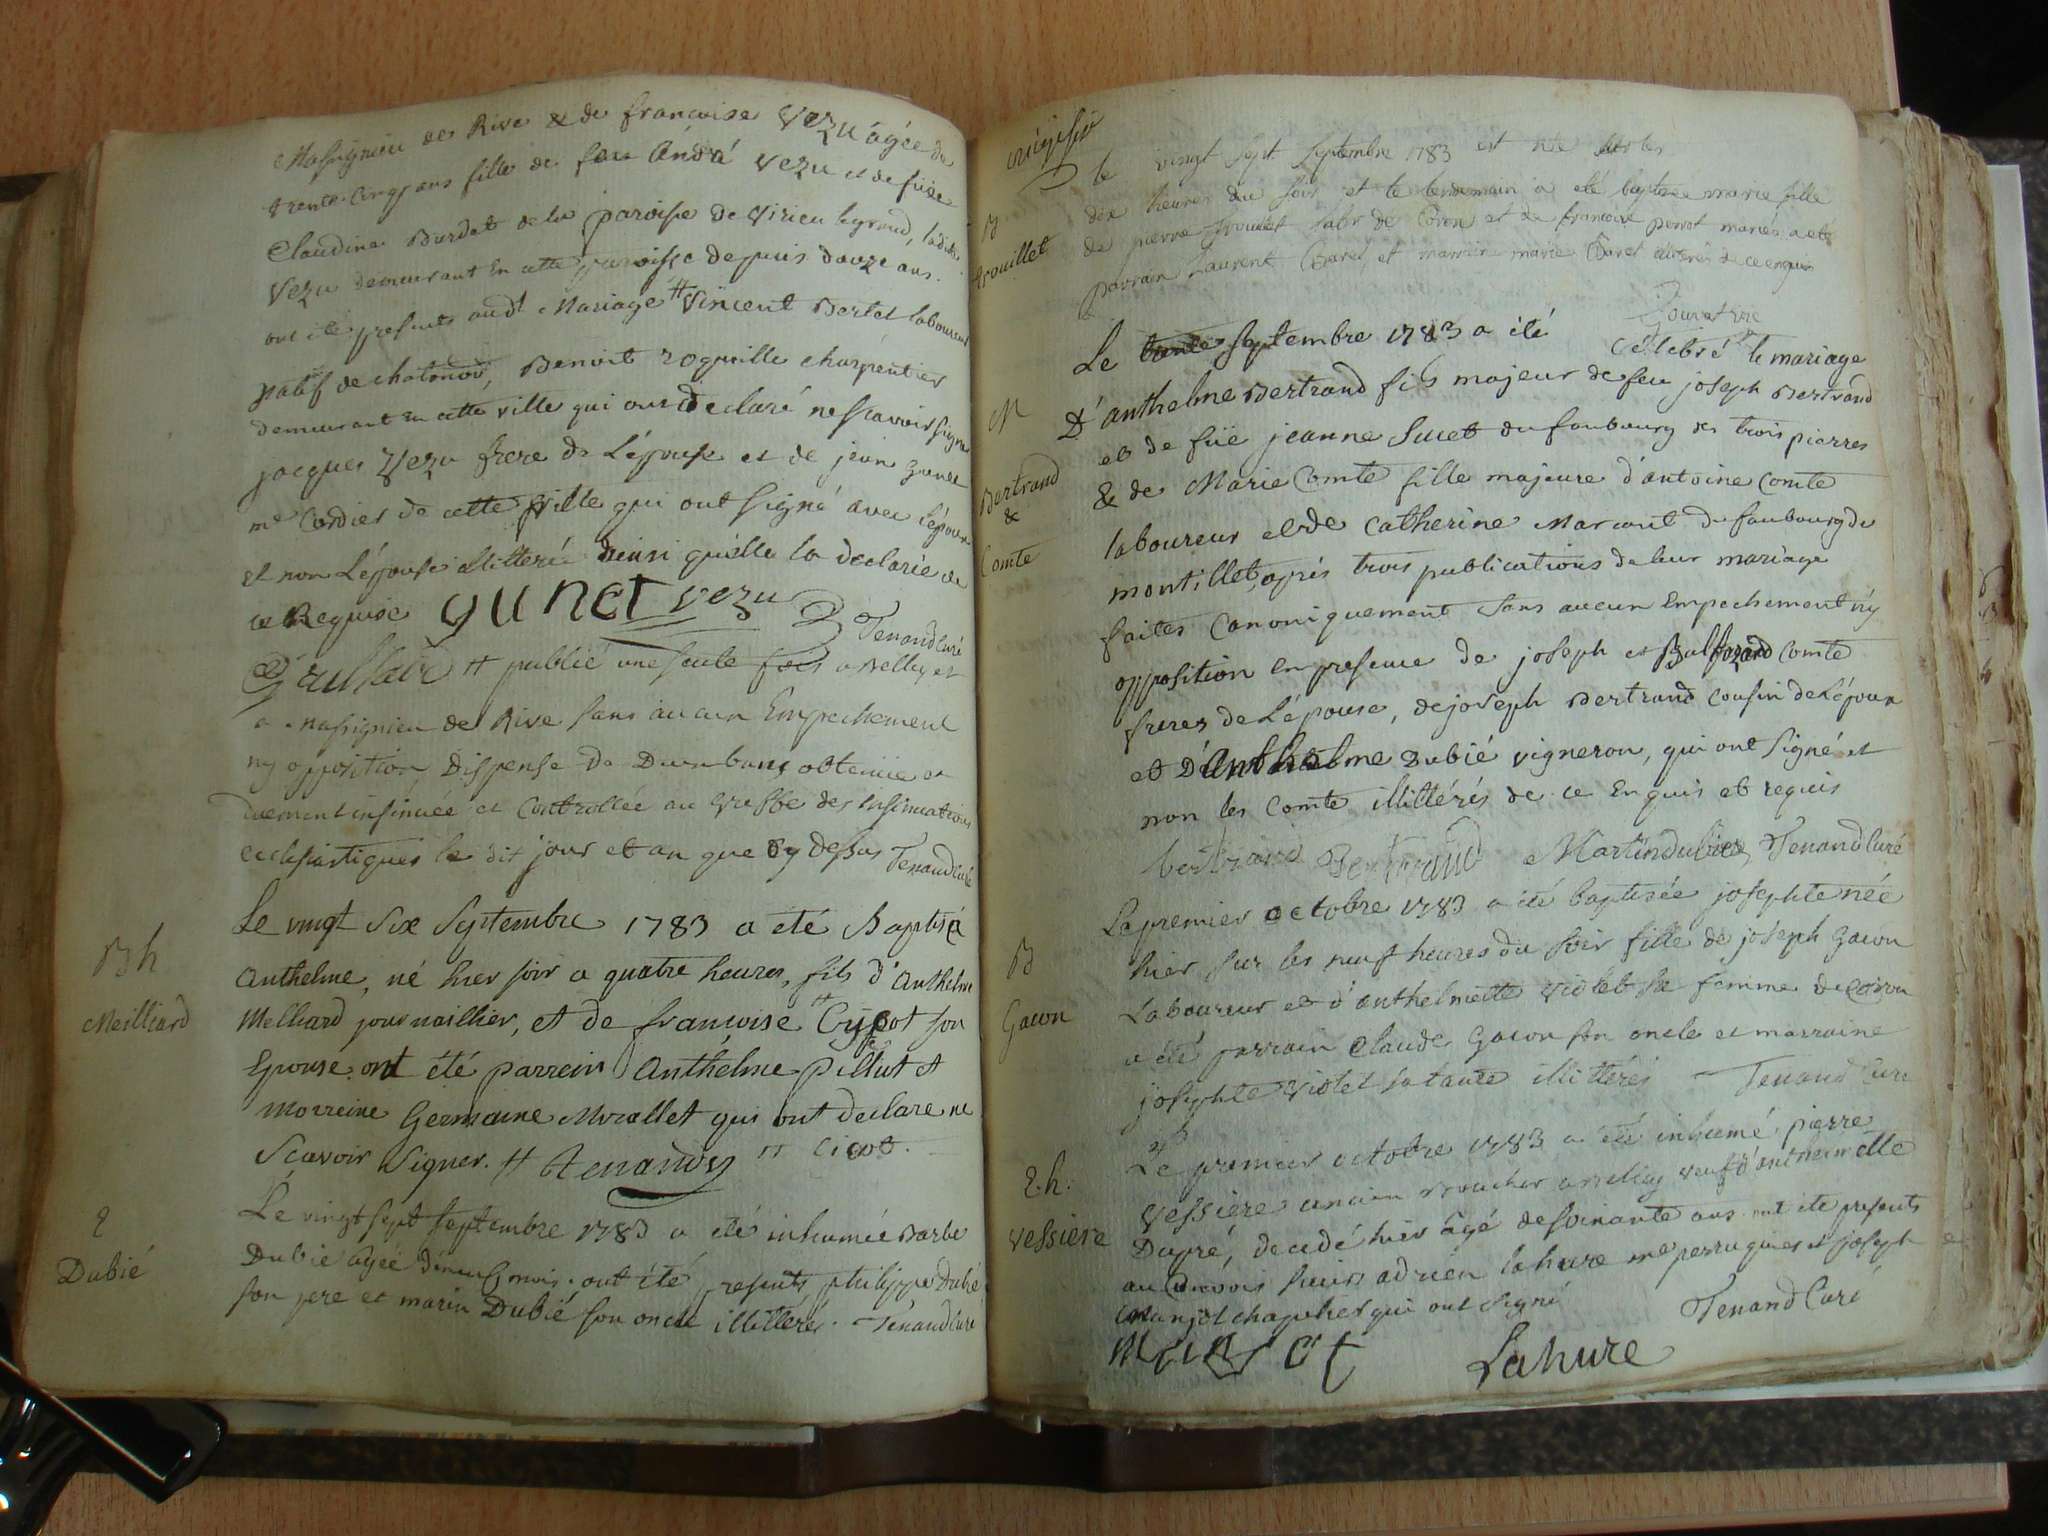 Massignieu de Rive & de francoise Vezu agée de
trente cinq ans fille de feu André Vezu et de füe
Claudine Burdet de la paroisse de Virieu legrand, ladite
Vezu demeurant En cette paroisse depuis douze ans.
ont été presents audt Mariage # Vincent Bertet laboureur
natif de chatonod, Benoit roquille charpentier
demeurant En cette ville qui ont declaré ne scavoir signer
jacques Vezu frere de L'épouse et de jean gunet
me Cordier de cette ville qui ont signé avec l'époux
et non L'épouse illitterée ainsi qu'elle la declarée de
ce Requise gunet vezu
Tenand Curé
# publié une seule fois a Belley et
a Massignieu de Rive sans aucun Empechement
ny opposition Dispense de Deux bans obtenüe et
duement insinuée et Controllée au Greffe des insinuations
ecclesiastiques le dit jour et an que Cy dessus Tenand curé
Bh
Meilliard
Le vingt Six Septembre 1783 a eté Baptisé
Anthelme, né hier soir a quatre heures, fils d'Anthelme
Melliard journaillier, et de francoise # son
Epouse ont été parrein Anthelme pillut et
marreine Germaine Morallet qui ont declare ne
Scavoir Signer. # Tenand # Cicot.
E
Dubié
Le vingt sept septembre 1783 a eté inhumée Barbe
Dubié agée de neuf mois, ont été presents philippe Dubié
son pere et marin Dubié son oncle illitterés. Tenand Curé
B
trouillet
le vingt sept septembre 1783 est née sur les
dix heures du soir et le lendemain a eté baptisée marie fille
de pierre trouillet labr de Coron et de francoise perrot mariés a eté
parrain Laurent et marraine marie illiterés de ce enquis
M
Bertrand
&
Comte
Le trente septembre 1783 a été celebré le mariage
D'anthelme Bertrand fils majeur de feu joseph Bertrand
et de füe jeanne Sucet du faubourg des trois pierres
& de Marie Comte fille majeure d'antoine Comte
laboureur et de Catherine Marcout du faubourg du
montillet, aprés trois publications de leur mariage
faites Canoniquement Sans aucun Empechement n'y
opposition En presence de joseph et Baltazard Comte
freres de L'épouse, de joseph Bertrand cousin de L'époux
et D'Anthelme Dubié vigneron, qui ont signé et
non les Comte illittérés de ce Enquis et requis
bertrand Bertrand Martin dubiez Tenand Curé
B
Gacon
Le premier octobre 1783 a été baptisée josephte née
hier sur les neuf heures du soir fille de jóseph Gacon
Laboureur et d'anthelmette Violet sa femme de Coron
a été parrain Claude Gacon son oncle et marraine
josephte Violet sa tante illitterés Tenand Curé
E.h.
Vessiere
Le premier octobre 1783 a été inhumé pierre
Vessiere ancien Boucher a Belley veuf d'anthelmette
Dupré, decedé hier âgé de soixante ans ont été presents
au Convois sieurs adrien lahure me perruquier et joseph
manjot chapelier qui ont signé Tenand Curé
Lahure